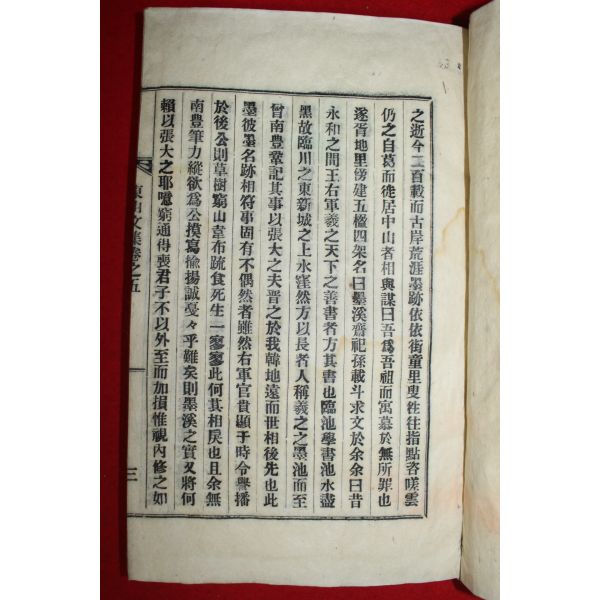 之逝今二百載而古岸荒涯墨跡依依街童里叟徃徃指點咨嗟雲
仍之自葛而徙居中山者相與謀曰吾爲吾祖而寓慕於無所罪也
遂胥地里傍建五楹四架名曰墨溪齋祀孫載斗求文於余余曰昔
永和之間王右軍羲之天下之善書者方其書也臨池學書池水盡
黑故臨川之東新城之上水窪然方以長者人稱羲之之墨池而至
曾南豊鞏記其事以張大之夫晋之於我韓地遠而世相後先也此
墨彼墨名跡相符事固有不偶然者雖然右軍官貴顯于時令譽播
於後公則草樹窮山韋布疏食死生一寥寥此何其相戾也且余無
南豊筆力縱欲爲公摸寫揄揚誠戞々乎難矣則墨溪之實又將何
賴以張大之耶噫窮通得喪君子不以外至而加損惟視內修之如
文集卷之五
三